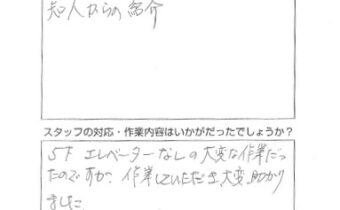 知人からの紹介
スタッフの対応・作業内容はいかがだったでしょうか?
5F エレベーターなしの大変な作業だっ
たのですが、作業していただき大変助かり
ました